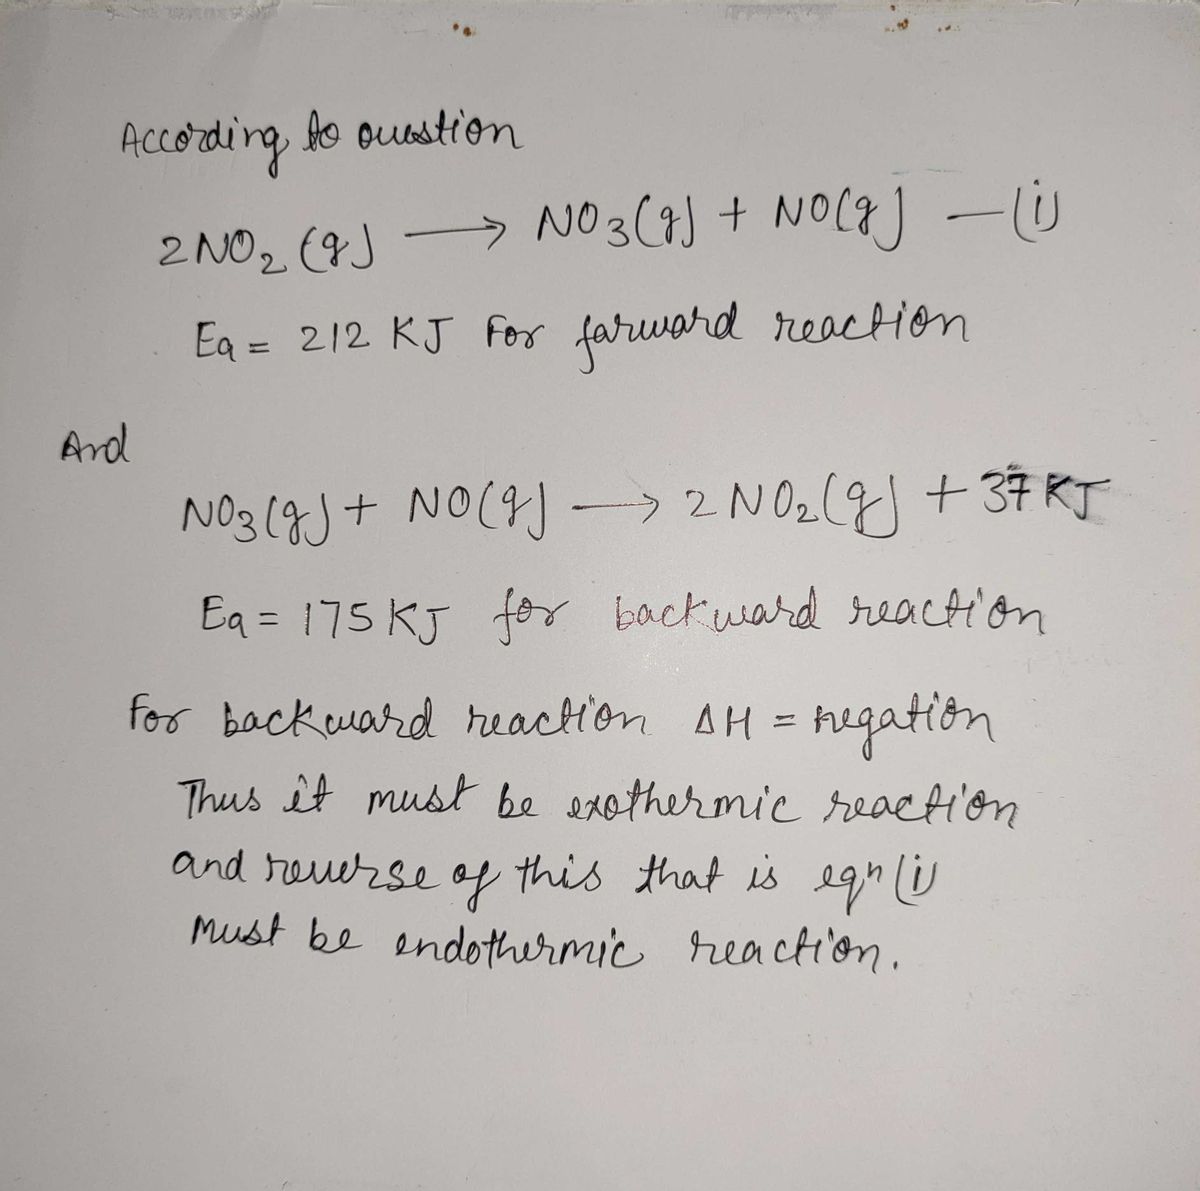 According to question
2NO₂(g) ⟶ NO₃(g) + NO(g) —(i)
Ea = 212 KJ For farward reaction
And
NO₃(g) + NO(g) ⟶ 2NO₂(g) + 37 KJ
Ea = 175 KJ for backward reaction
For backward reaction ΔH = negation
Thus it must be exothermic reaction
and reverse of this that is eqⁿ (i)
Must be endothermic reaction.